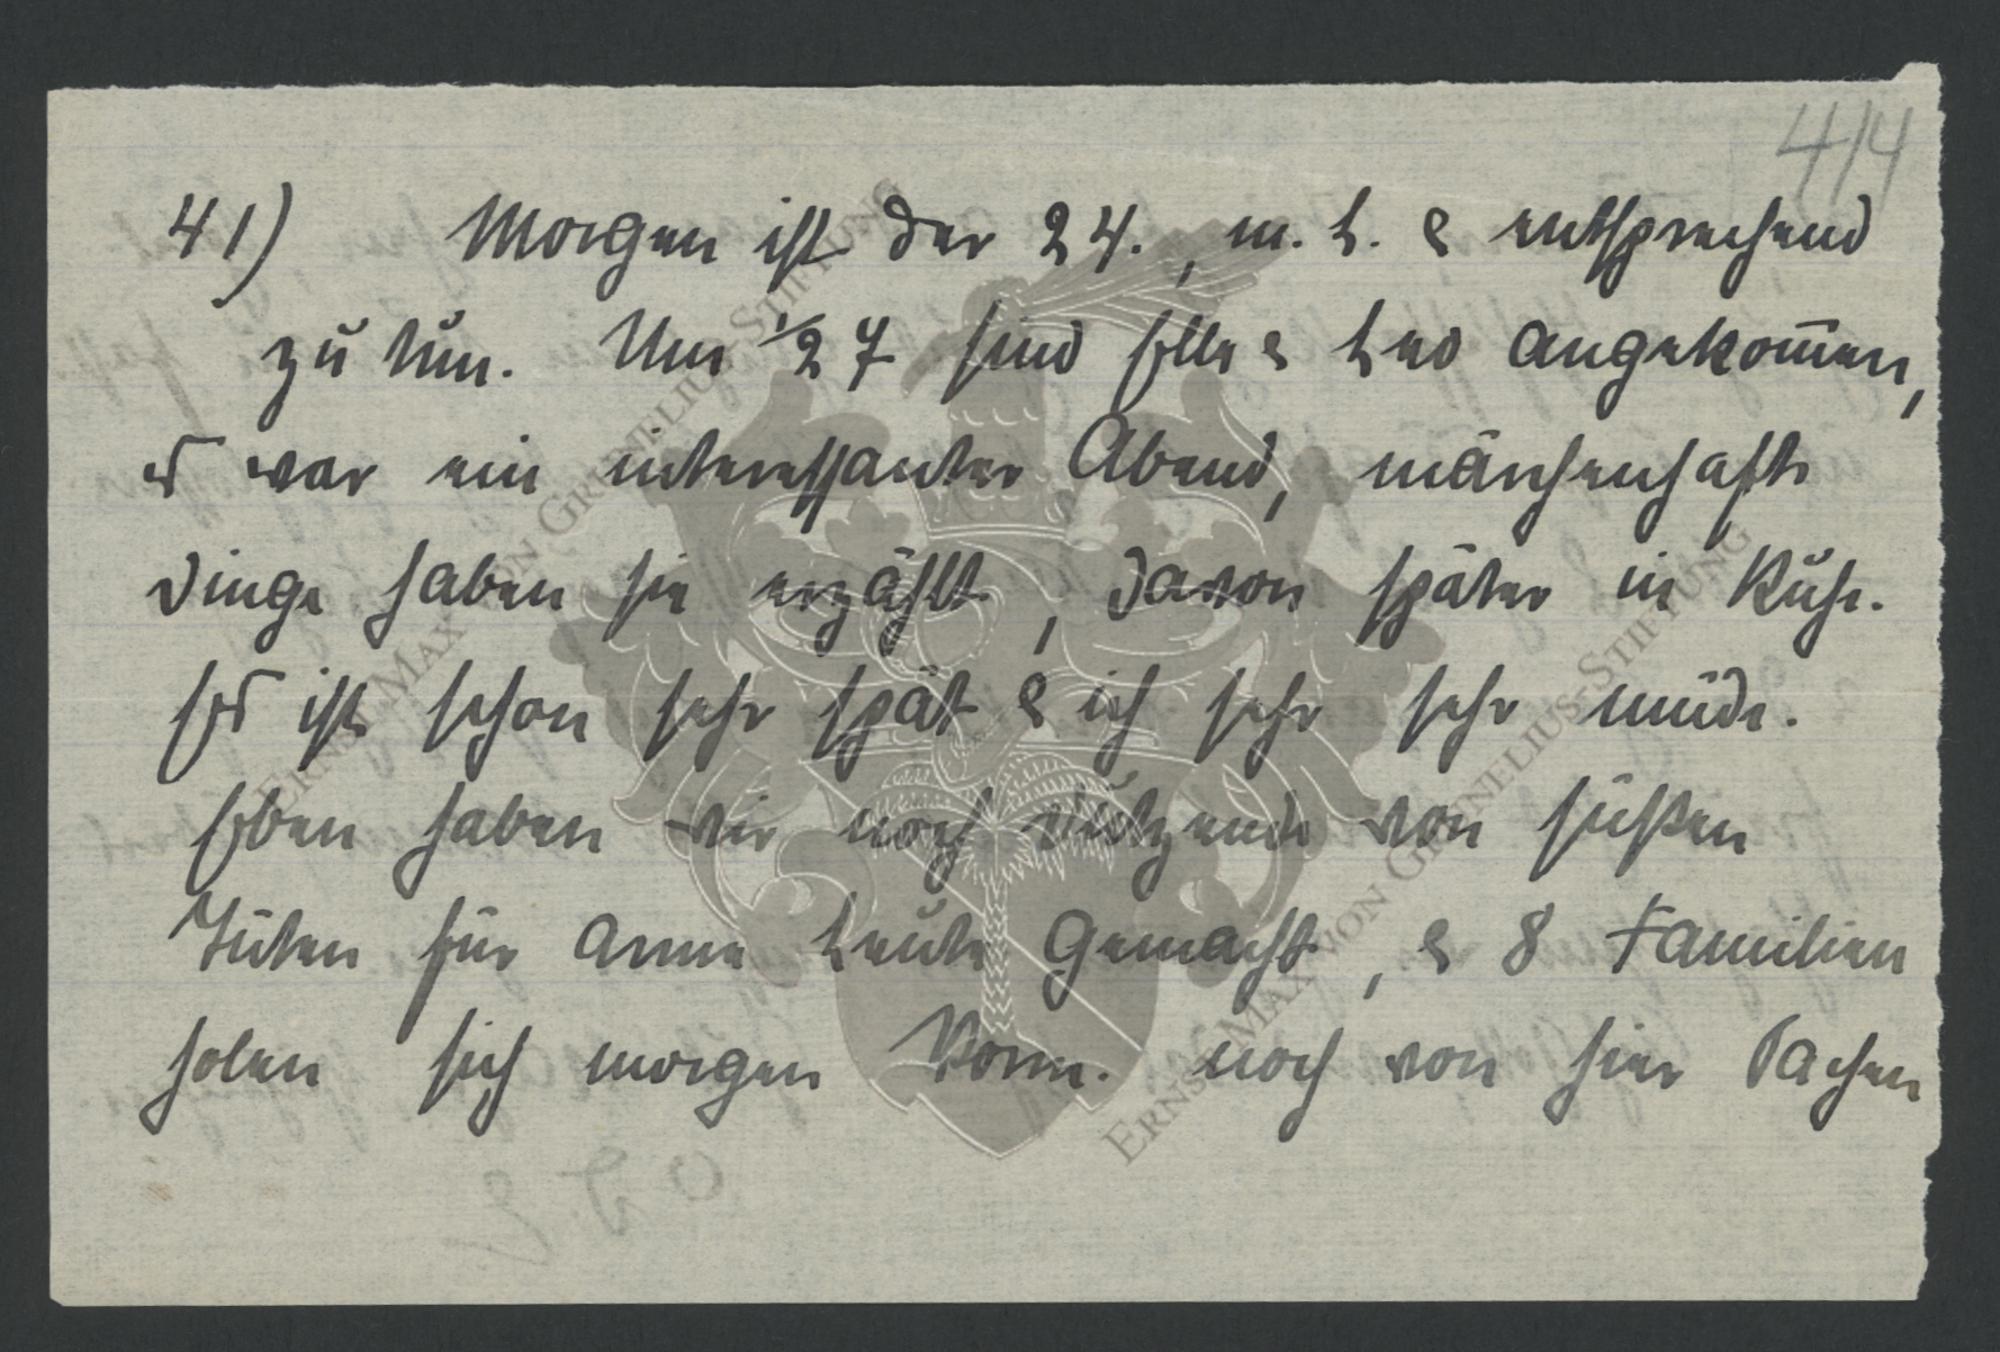 414
41) Morgen ist der 24., m. L. & entsprechend
zu tun. Um 1/2 7 sind Elle & Leo angekom̅en,
es war ein interessanter Abend, märchenhafte
Dinge haben sie erzählt, davon später in Ruhe.
Es ist schon sehr spät & ich sehr sehr müde.
Eben haben wir noch Dutzende von süßen
Tüten für arme Leute gemacht, & 8 Familien
holen sich morgen Vorm. noch von hier Sachen
ERNST MAX VON GRUNELIUS-STIFTUNG
ERNST MAX VON GRUNELIUS-STIFTUNG